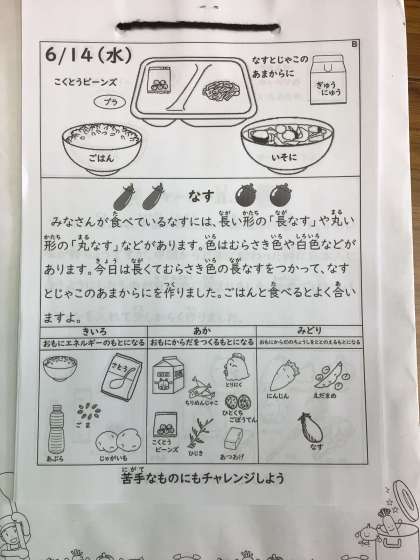 B
6/14(水)
こくとうビーンズ
プラ
なすとじゃこの
あまからに
ぎゅう
にゅう
ごはん
いそに
なす
みなさんが食べているなすには、長い形の「長なす」や丸い
形の「丸なす」などがあります。色はむらさき色や白色などが
あります。今日は長くてむらさき色の長なすをつかって、なす
とじゃこのあまからにを作りました。ごはんと食べるとよく合い
ますよ。
きいろ
おもにエネルギーのもとになる
あか
おもにからだをつくるもとになる
みどり
おもにからだのちょうしをととのえるもとになる
さとう
ごま
あぶら
じゃがいも
とりにく
ちりめんじゃこ
ひとくち
ごぼうてん
こくとう
ビーンズ
ひじき
あつあげ
にんじん
えだまめ
なす
苦手なものにもチャレンジしよう